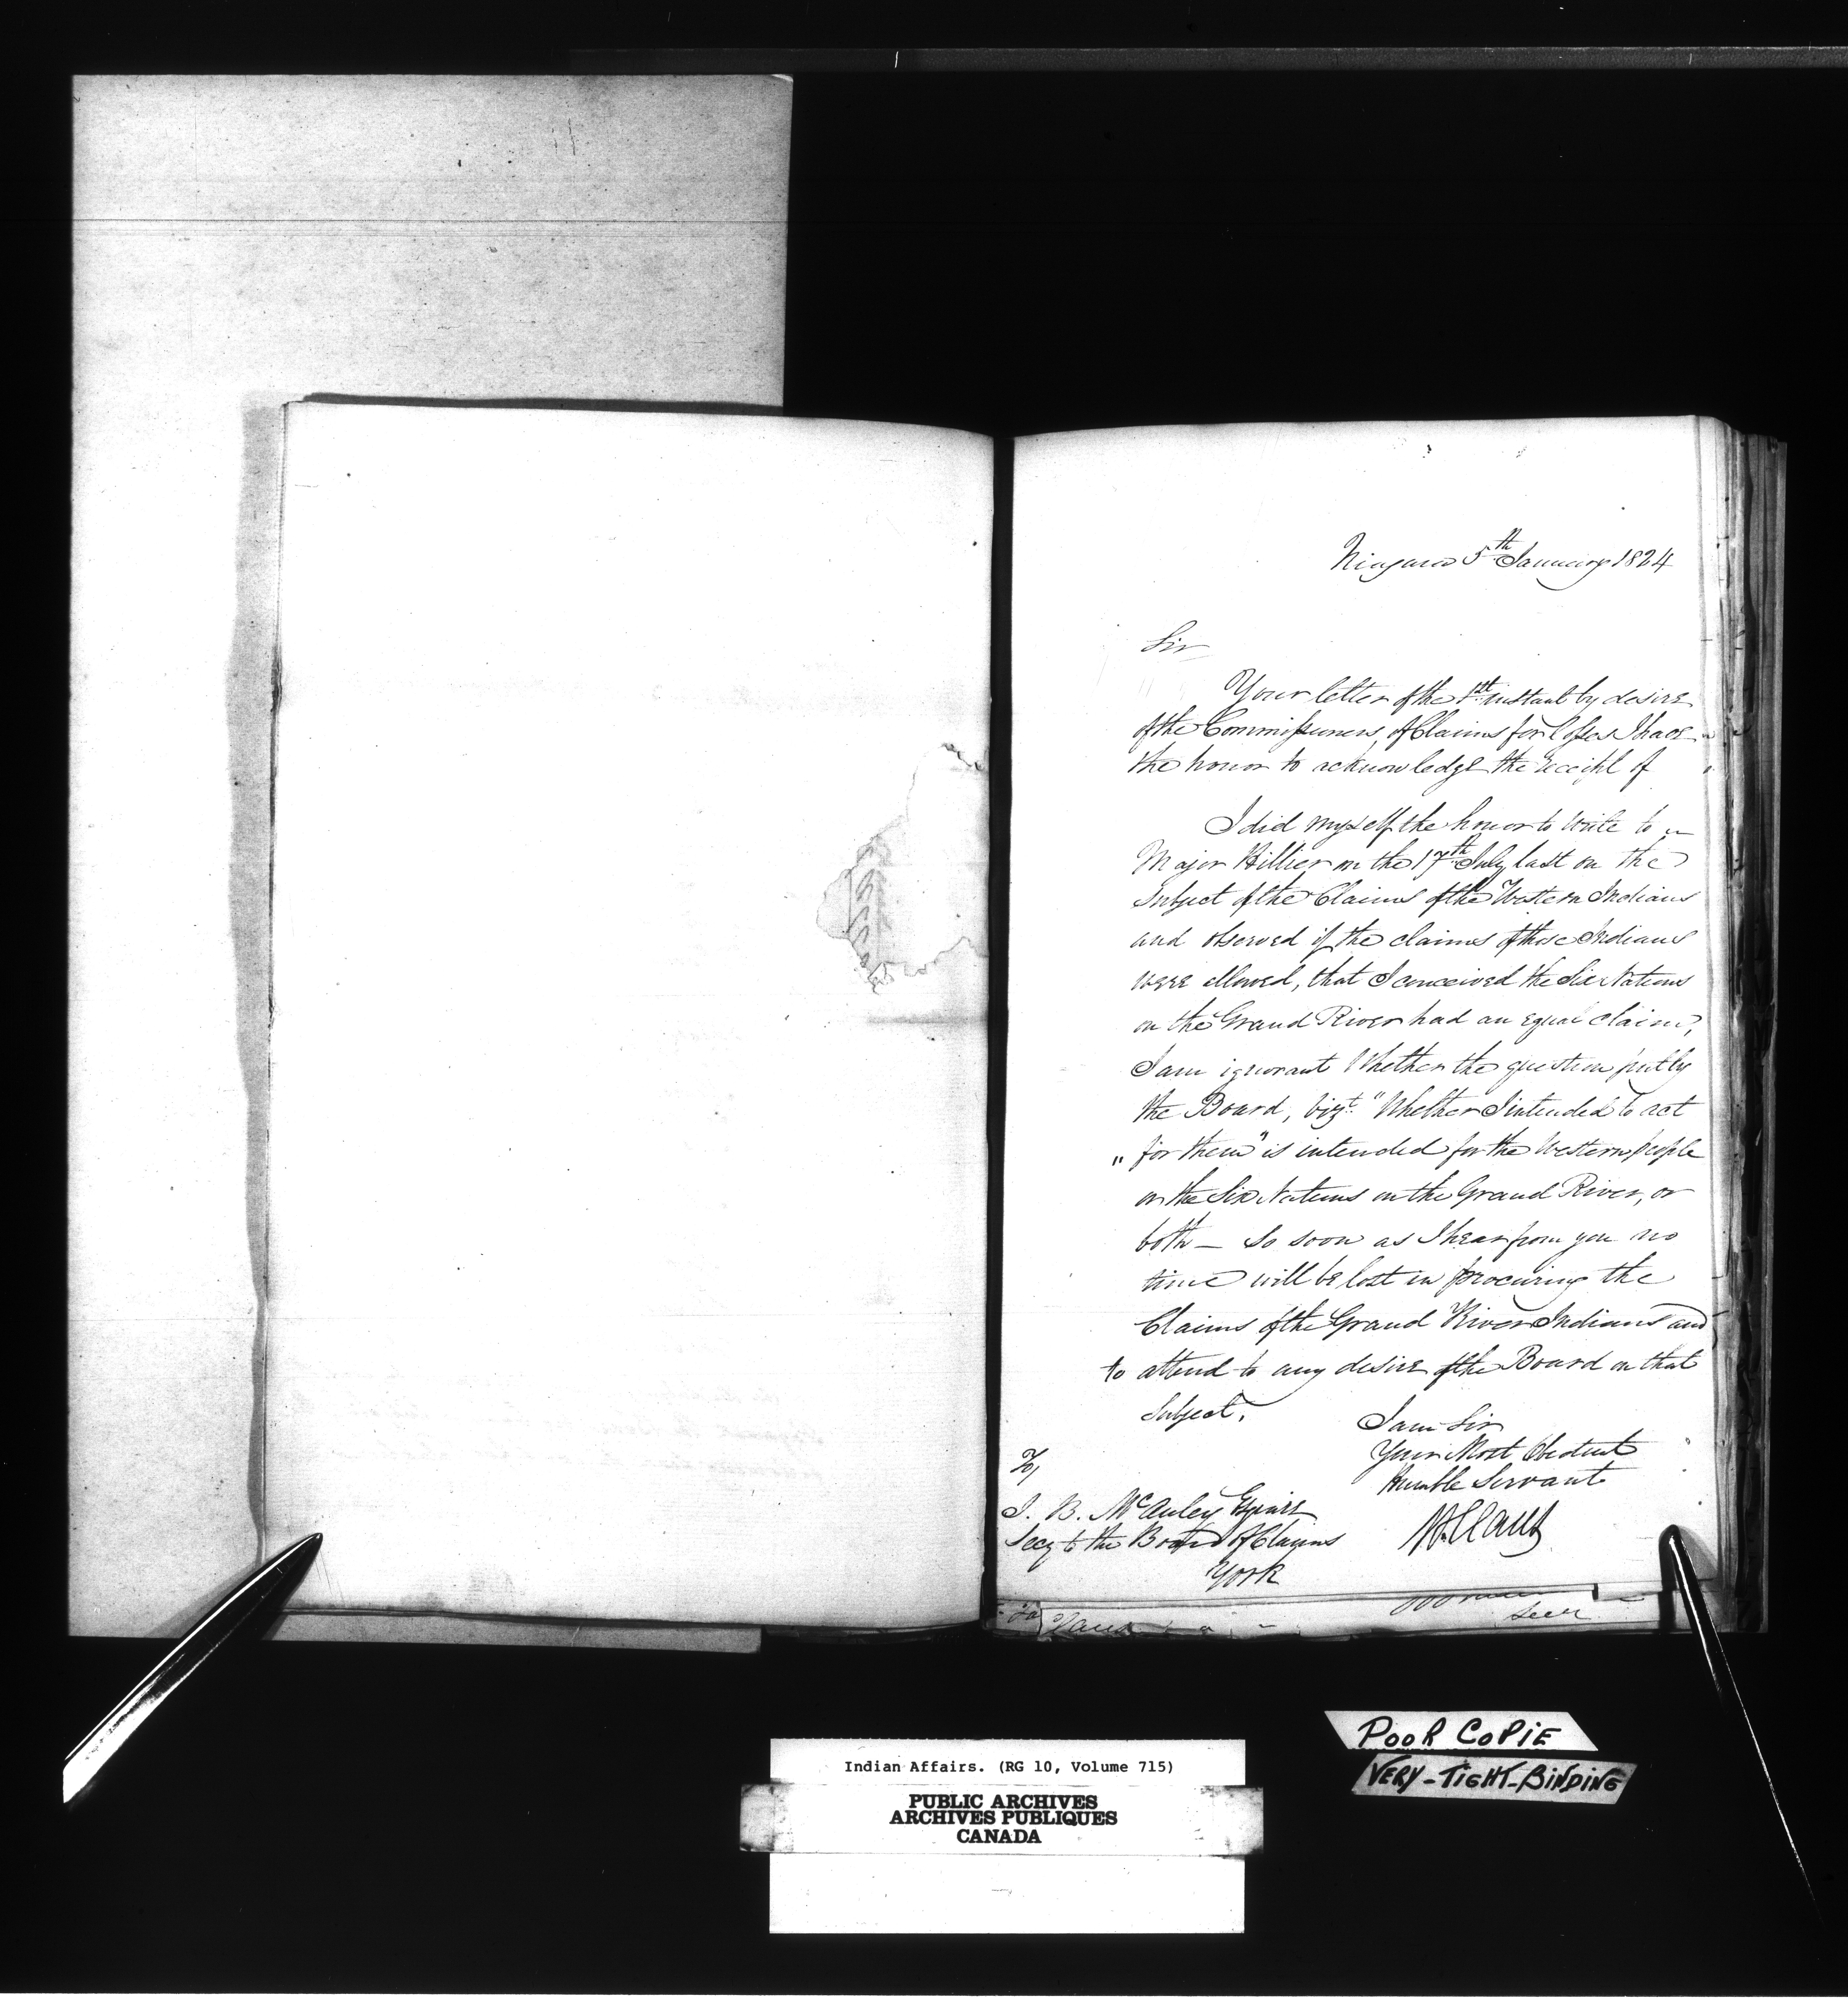 Niagara 5th January 1824
Sir
Your letter of the 1st instant by desire
of the Commissioners of Claims for Losses I have
the honor to acknowledge the receipt of
I did myself the honor to write to
Major Hillier on the 17th July last on the
Subject of the Claims of the Western Indians
and observed if the claims of those Indians
were allowed, that I conceived the Six Nations
on the Grand River had an equal claim,
I am ignorant Whether the question put by
the Board, vizt. "Whether I intended to act
" for them" is intended for the Western people
or the Six Nations on the Grand River, or
both — So soon as I hear from you no
time will be lost in procuring the
Claims of the Grand River Indians and
to attend to any desire of the Board on that
Subject.
I am Sir
Your Most Obedient
Humble Servant
W. Claus
To,
J. B. McAuley Esquire
Secy to the Board of Claims
York
Indian Affairs. (RG 10, Volume 715)
PUBLIC ARCHIVES
ARCHIVES PUBLIQUES
CANADA
POOR COPIE
VERY-TIGHT-BINDING